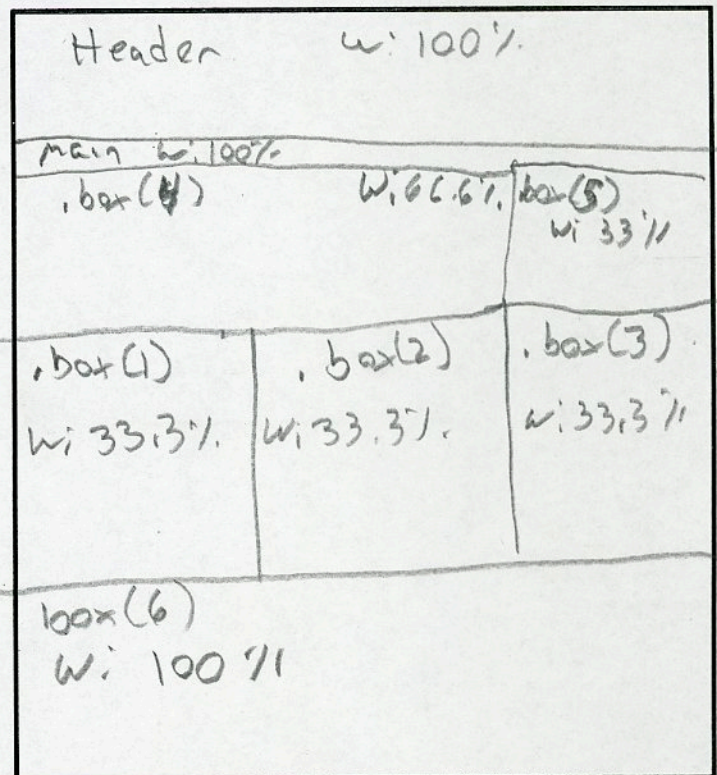 Header W: 100%
main W: 100%
.box(4) W: 66.6%
.box(5)
W: 33%
.box(1)
W: 33.3%
.box(2)
W: 33.3%
.box(3)
W: 33.3%
box(6)
W: 100%